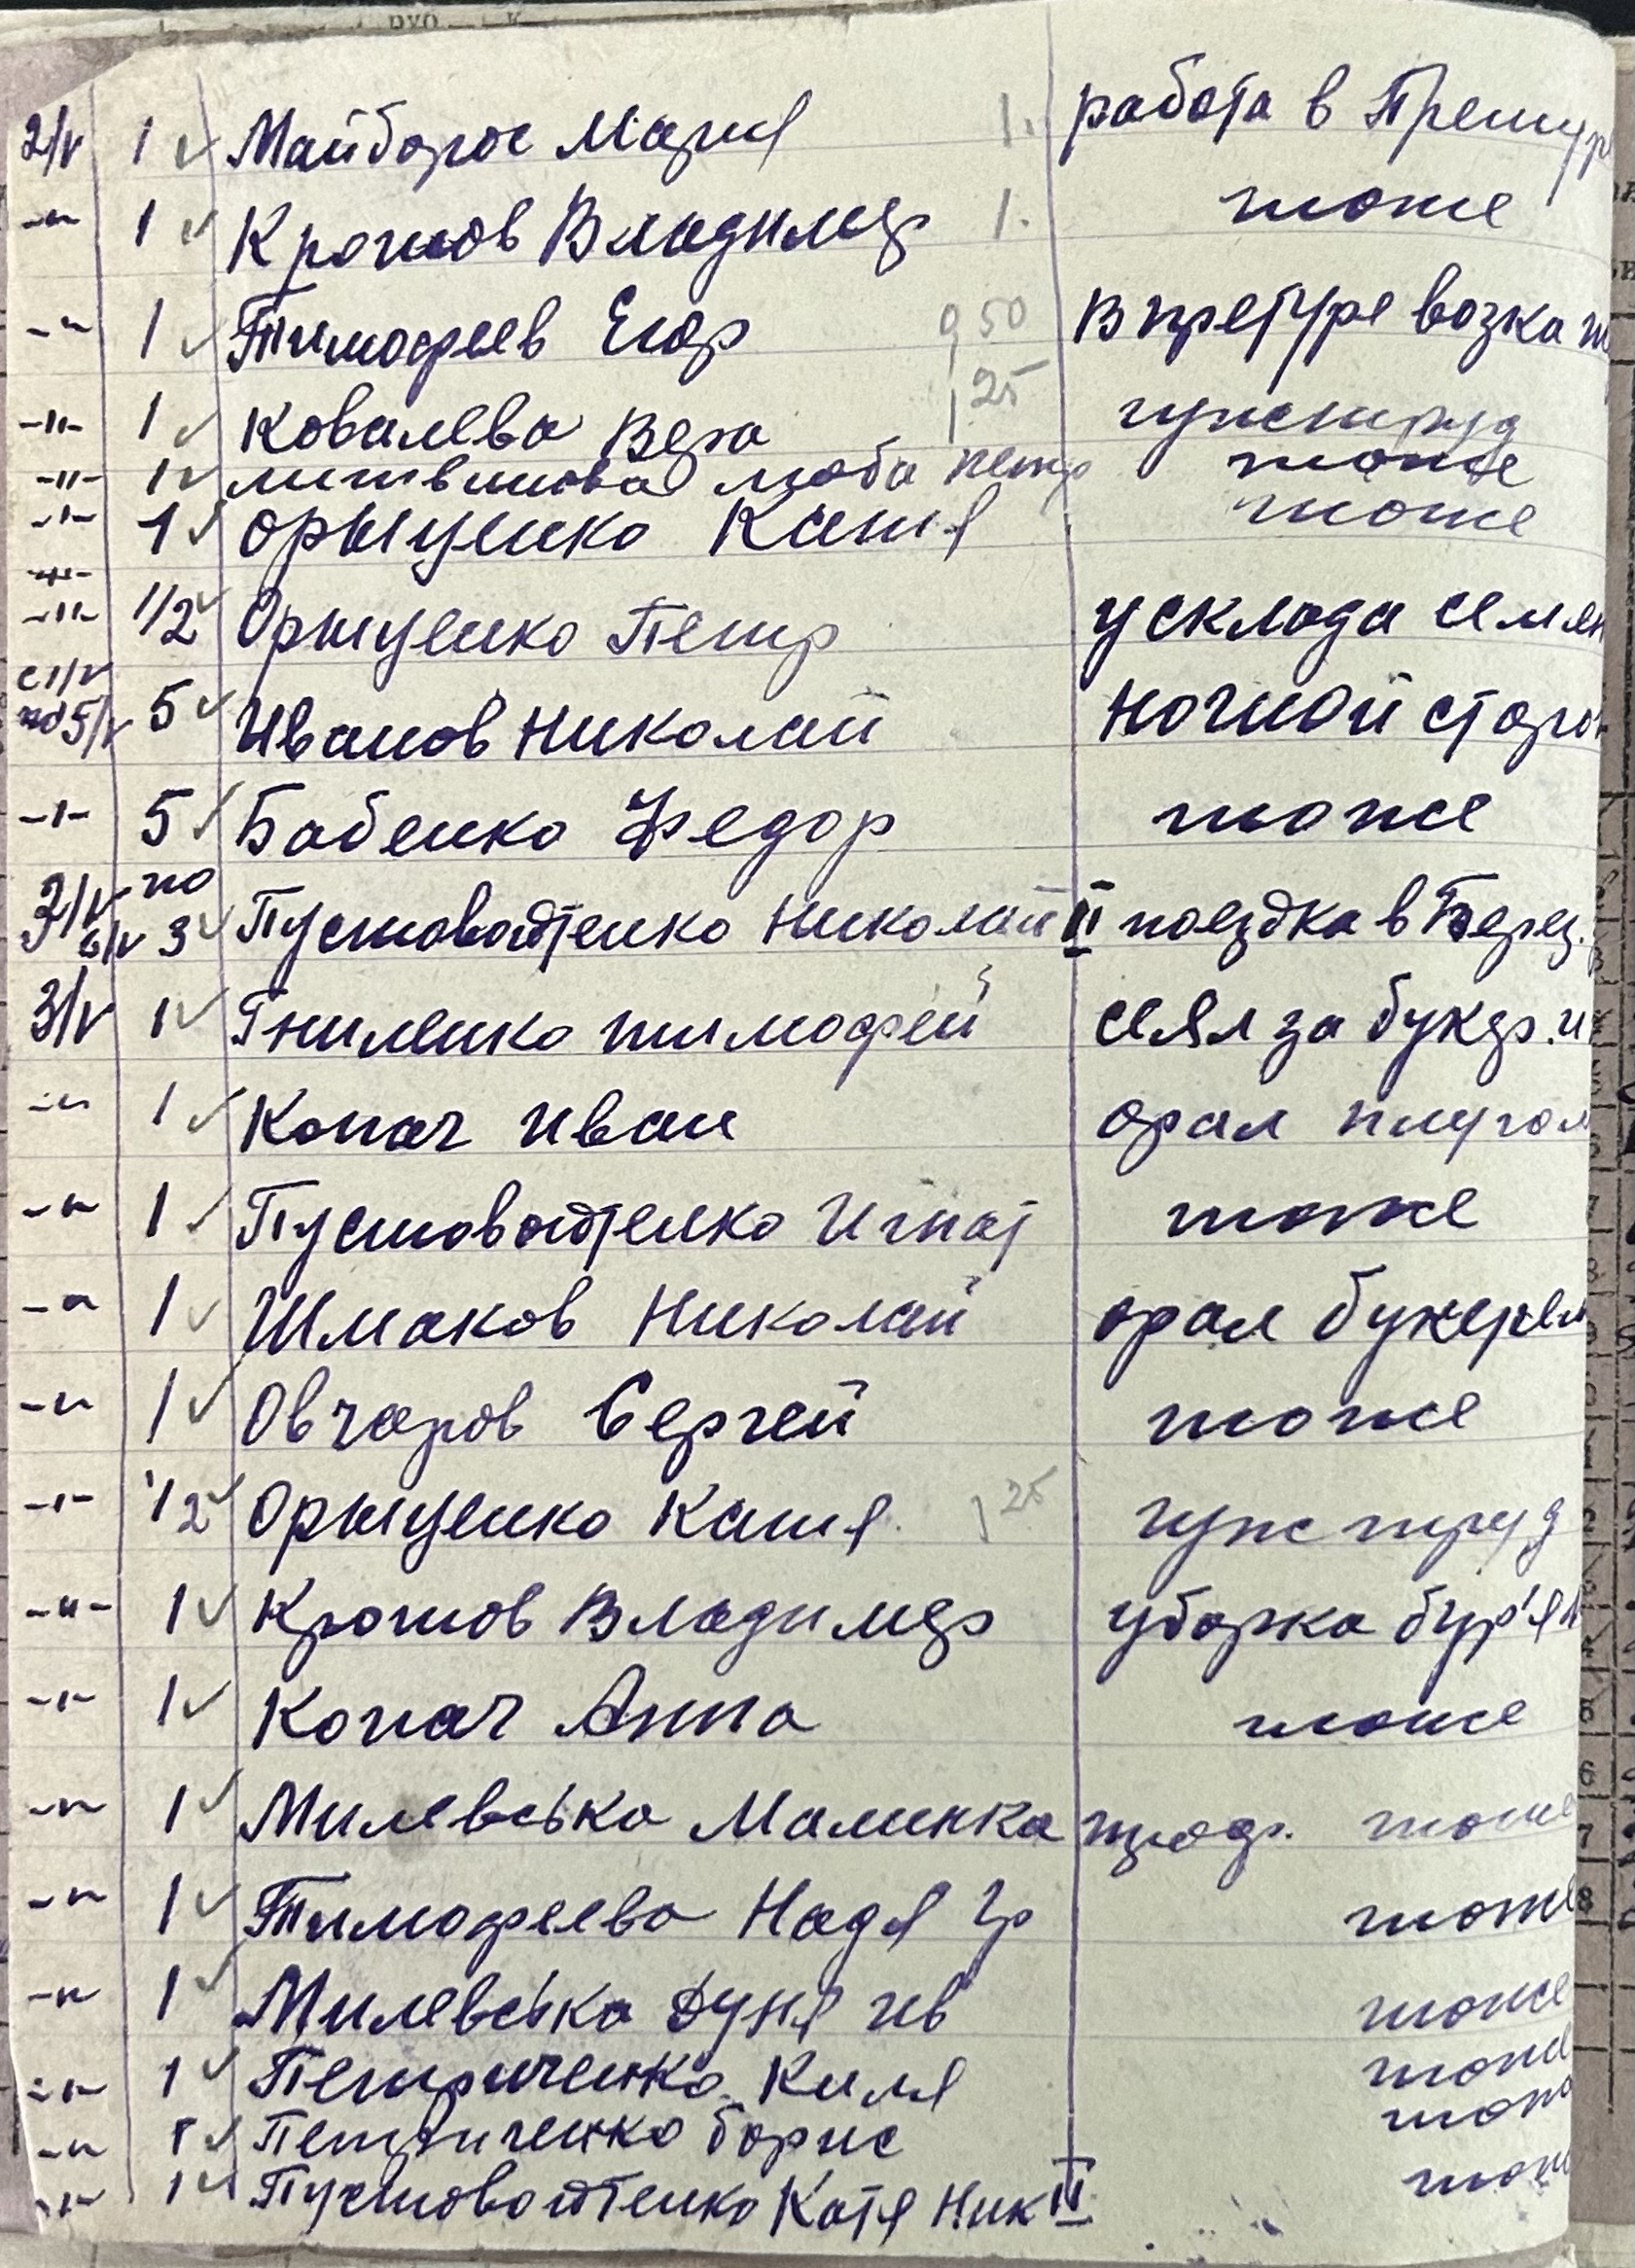 2/V 1 Майборос Мария 1. работа в Претур
-"- 1 Кротов Владимир 1. тоже
-"- 1 Тимофеев Егор 0,50 в претуре возка
-"- 1 Ковалева Вера 1,25 гужтруд
-"- 1 литвинова люба петр тоже
-"- 1 Орыщенко Катя тоже
-"- 1/2 Орыщенко Петр у склада семян
с 1/V по 5/V 5 Иванов Николай ночной сторо
-"- 5 Бабенко Федор тоже
2/V по 6/V 3 Пустовойтенко Николай II поездка в Берез.
3/V 1 Гниленко тимофей сеял за букер.
-"- 1 Копач иван орал плугом
-"- 1 Пустовойтенко Игнат тоже
-"- 1 Шмаков Николай орал букером
-"- 1 Овчаров Сергей тоже
-"- 1/2 Орыщенко Катя 1,25 гуж труд
-"- 1 Кротов Владимир уборка бур'ян
-"- 1 Копач Анна тоже
-"- 1 Милевська Маленка тоже
-"- 1 Тимофеева Надя Гр тоже
-"- 1 Милевська Дуня ив тоже
-"- 1 Петриченко Киля тоже
-"- 1 Петриченко борис тоже
-"- 1 Пустовойтенко Катя Ник II тоже